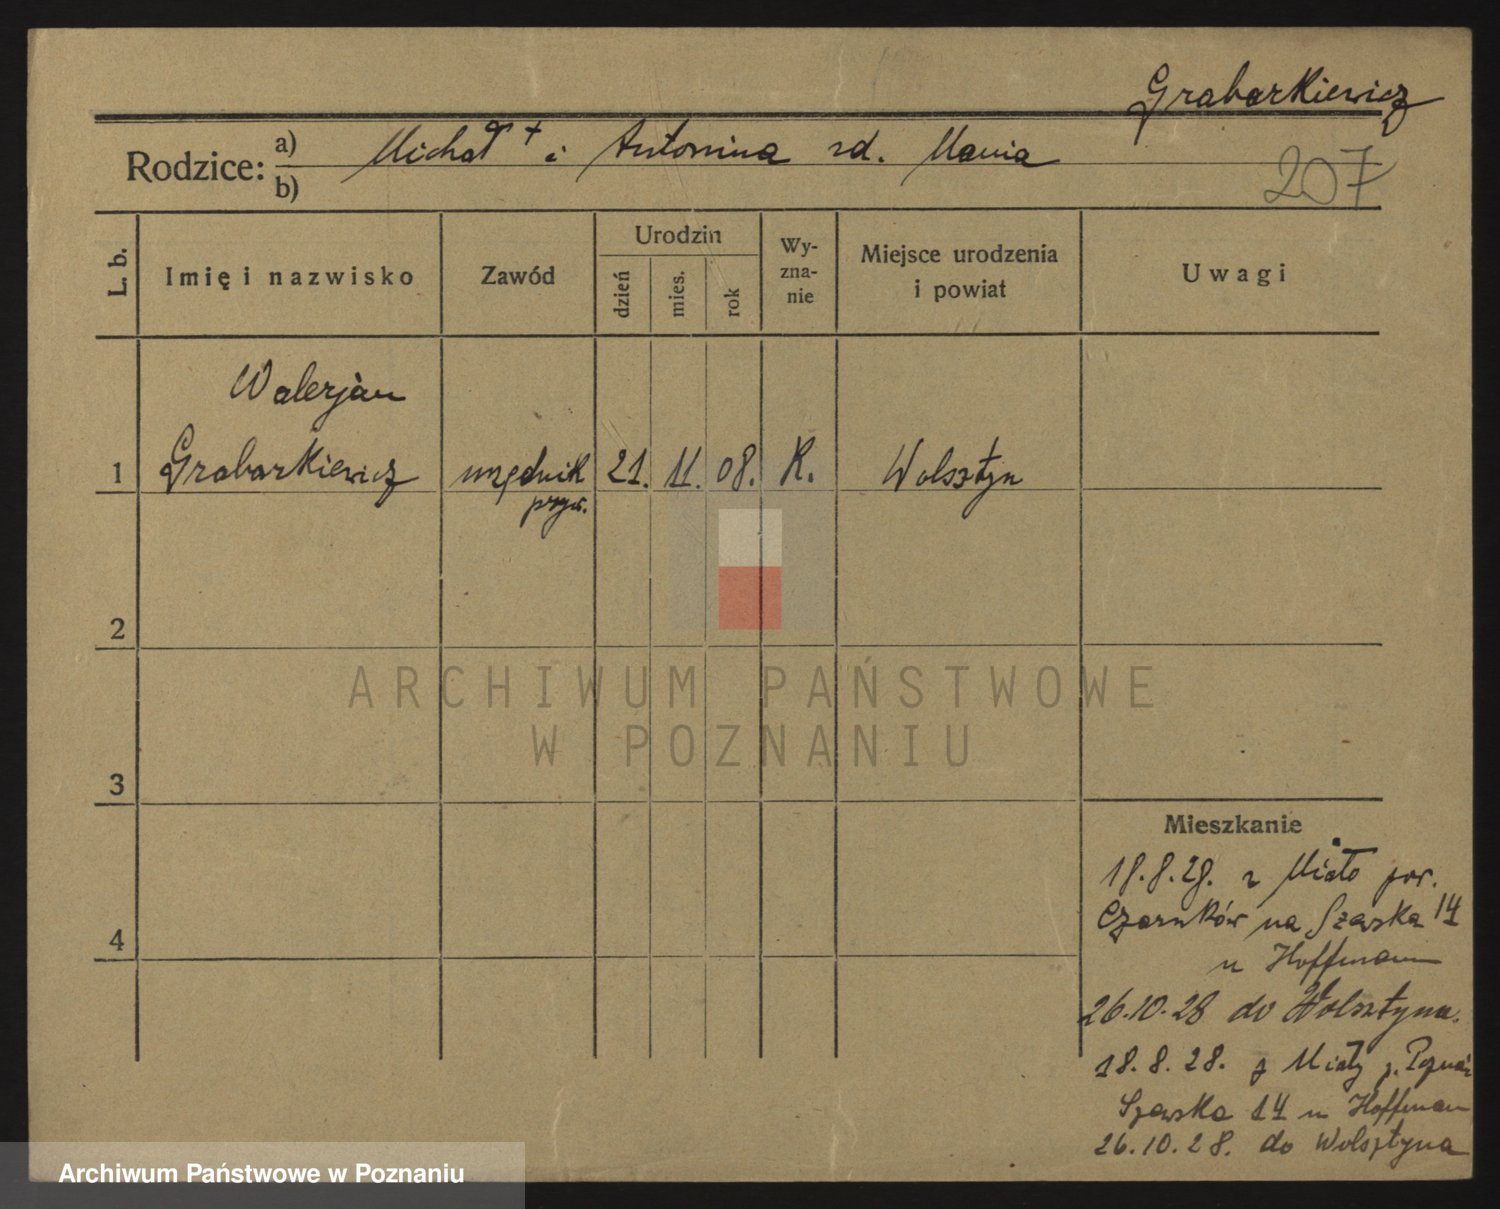 Grabarkiewicz
Rodzice: a) Michał + i Antonina zd. Mania
b)
207
L. b.
Imię i nazwisko
Zawód
Urodzin
dzień
mies.
rok
Wy-
zna-
nie
Miejsce urodzenia
i powiat
Uwagi
Walerjan
1 Grabarkiewicz urzędnik 21. 11. 08. K. Wolsztyn
pryw.
2
3
4
Mieszkanie
18.8.28. z Miało pow.
Czarnków na Szewska 14
u Hoffmann
26.10.28 do Wolsztyna.
18.8.28. z Miały p. Poznań
Szewska 14 u Hoffman
26.10.28. do Wolsztyna
ARCHIWUM PAŃSTWOWE
W POZNANIU
Archiwum Państwowe w Poznaniu